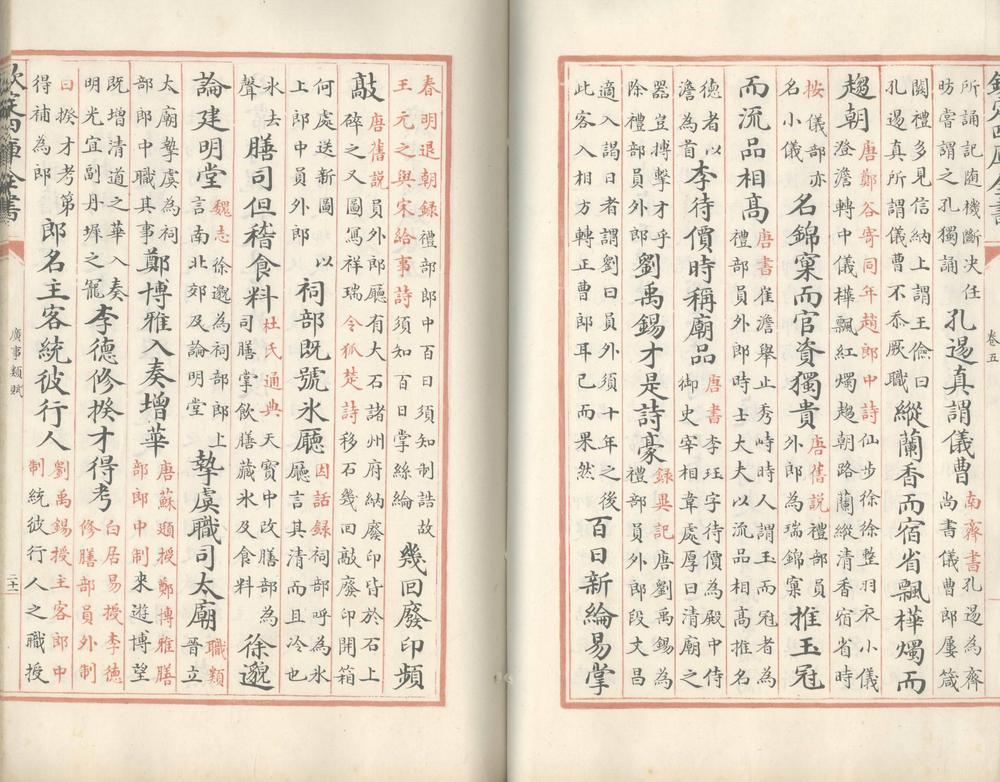 欽定四庫全書
卷五
所誦記隨機斷決任
昉嘗謂之孔獨誦
孔逷真謂儀曹
南齊書孔逷為齊
尚書儀曹郎屢箴
闕禮多見信納上謂王儉曰
孔逷真所謂儀曹不忝厥職
縱蘭香而宿省飄樺燭而
趨朝
唐鄭谷寄同年趙郎中詩仙步徐徐整羽衣小儀
澄澹轉中儀樺飄紅燭趨朝路蘭縱清香宿省時
按儀部亦
名小儀
名錦窠而官資獨貴
唐舊說禮部員
外郎為瑞錦窠
推玉冠
而流品相高
唐書崔澹舉止秀峙時人謂玉而冠者為
禮部員外郎時士大夫以流品相高推名
德者以
澹為首
李待價時稱廟品
唐書李珏字待價為殿中侍
御史宰相韋處厚曰清廟之
器豈搏擊才乎
除禮部員外郎
劉禹錫才是詩豪
録異記唐劉禹錫為
禮部員外郎段文昌
適入謁日者謂劉曰員外須十年之後
此客入相方轉正曹郎耳已而果然
百日新綸易掌
春明退朝録禮部郎中百日須知制誥故
王元之與宋給事詩須知百日掌絲綸
幾回廢印頻
敲
唐舊說員外郎廳有大石諸州府納廢印皆於石上
碎之又圖寫祥瑞令狐楚詩移石幾回敲廢印開箱
何處送新圖以
上郎中員外郎
祠部既號氷廳
因話録祠部呼為氷
廳言其清而且冷也
氷去
聲
膳司但稽食料
杜氏通典天寶中改膳部為
司膳掌飲膳藏氷及食料
徐邈
論建明堂
魏志徐邈為祠部郎上
言南北郊及論明堂
摯虞職司太廟
職類
晉立
太廟摯虞為祠
部郎中職其事
鄭博雅入奏增華
唐蘇頲授鄭博雅膳
部郎中制來遊博望
既增清道之華入奏
明光宜副丹墀之寵
李德修揆才得考
白居易授李德
修膳部員外制
曰揆才考第
得補為郎
郎名主客統彼行人
劉禹錫授主客郎中
制統彼行人之職授
欽定四庫全書
廣事類賦
二十二